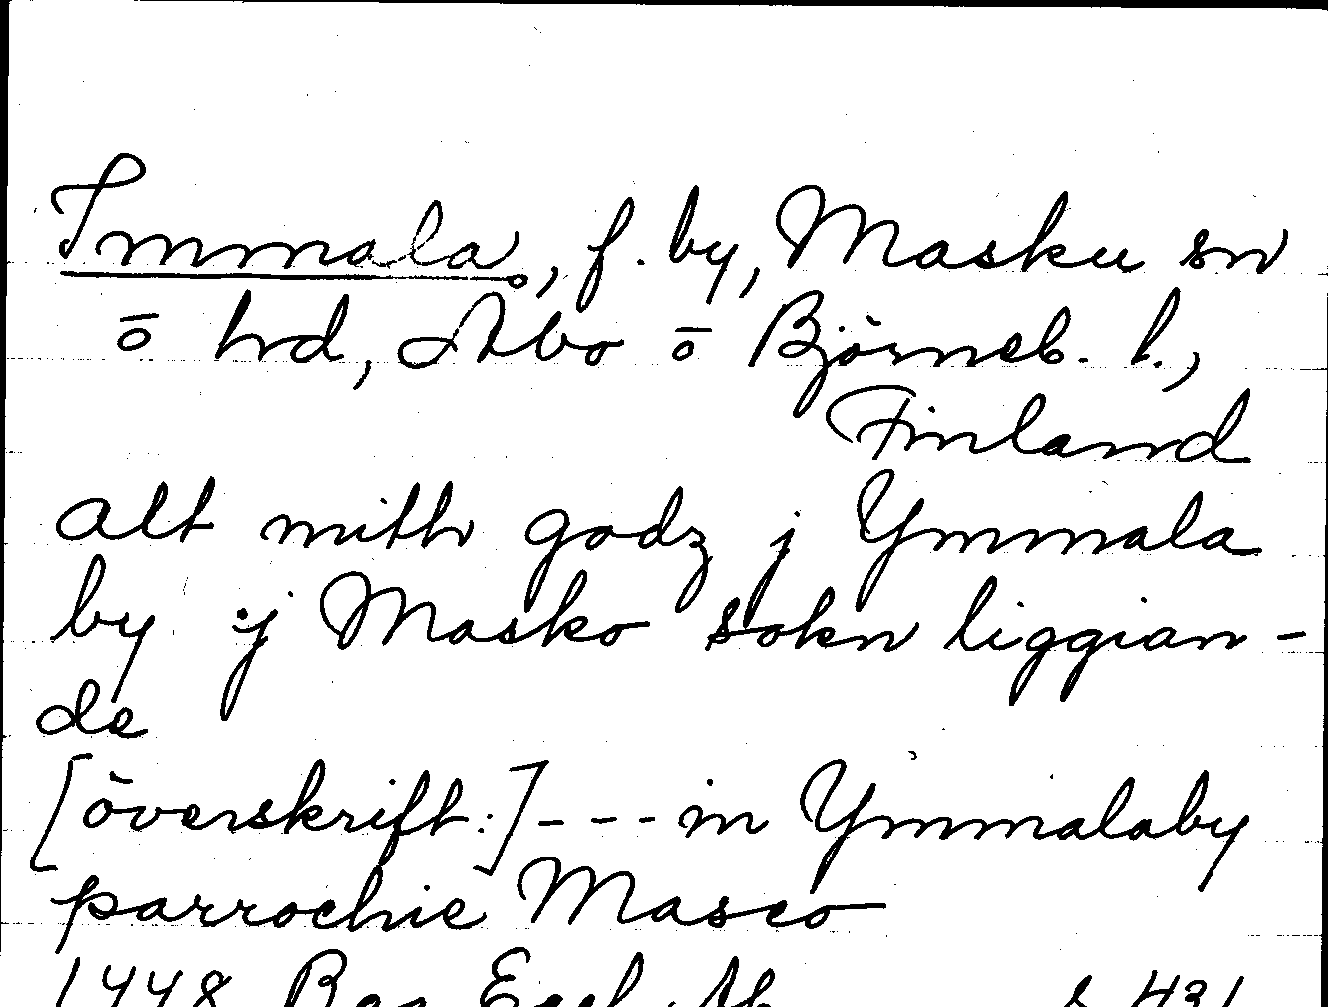 Immala, f. by, Masku sn
o hd, Åbo o Björneb. l.,
Finland
alt mith godz j Ymmala
by ij Masko sokn liggian-
de
[överskrift:] --- in Ymmalaby
parrochie Masco
1448 Reg. Eccl. Ab s 431